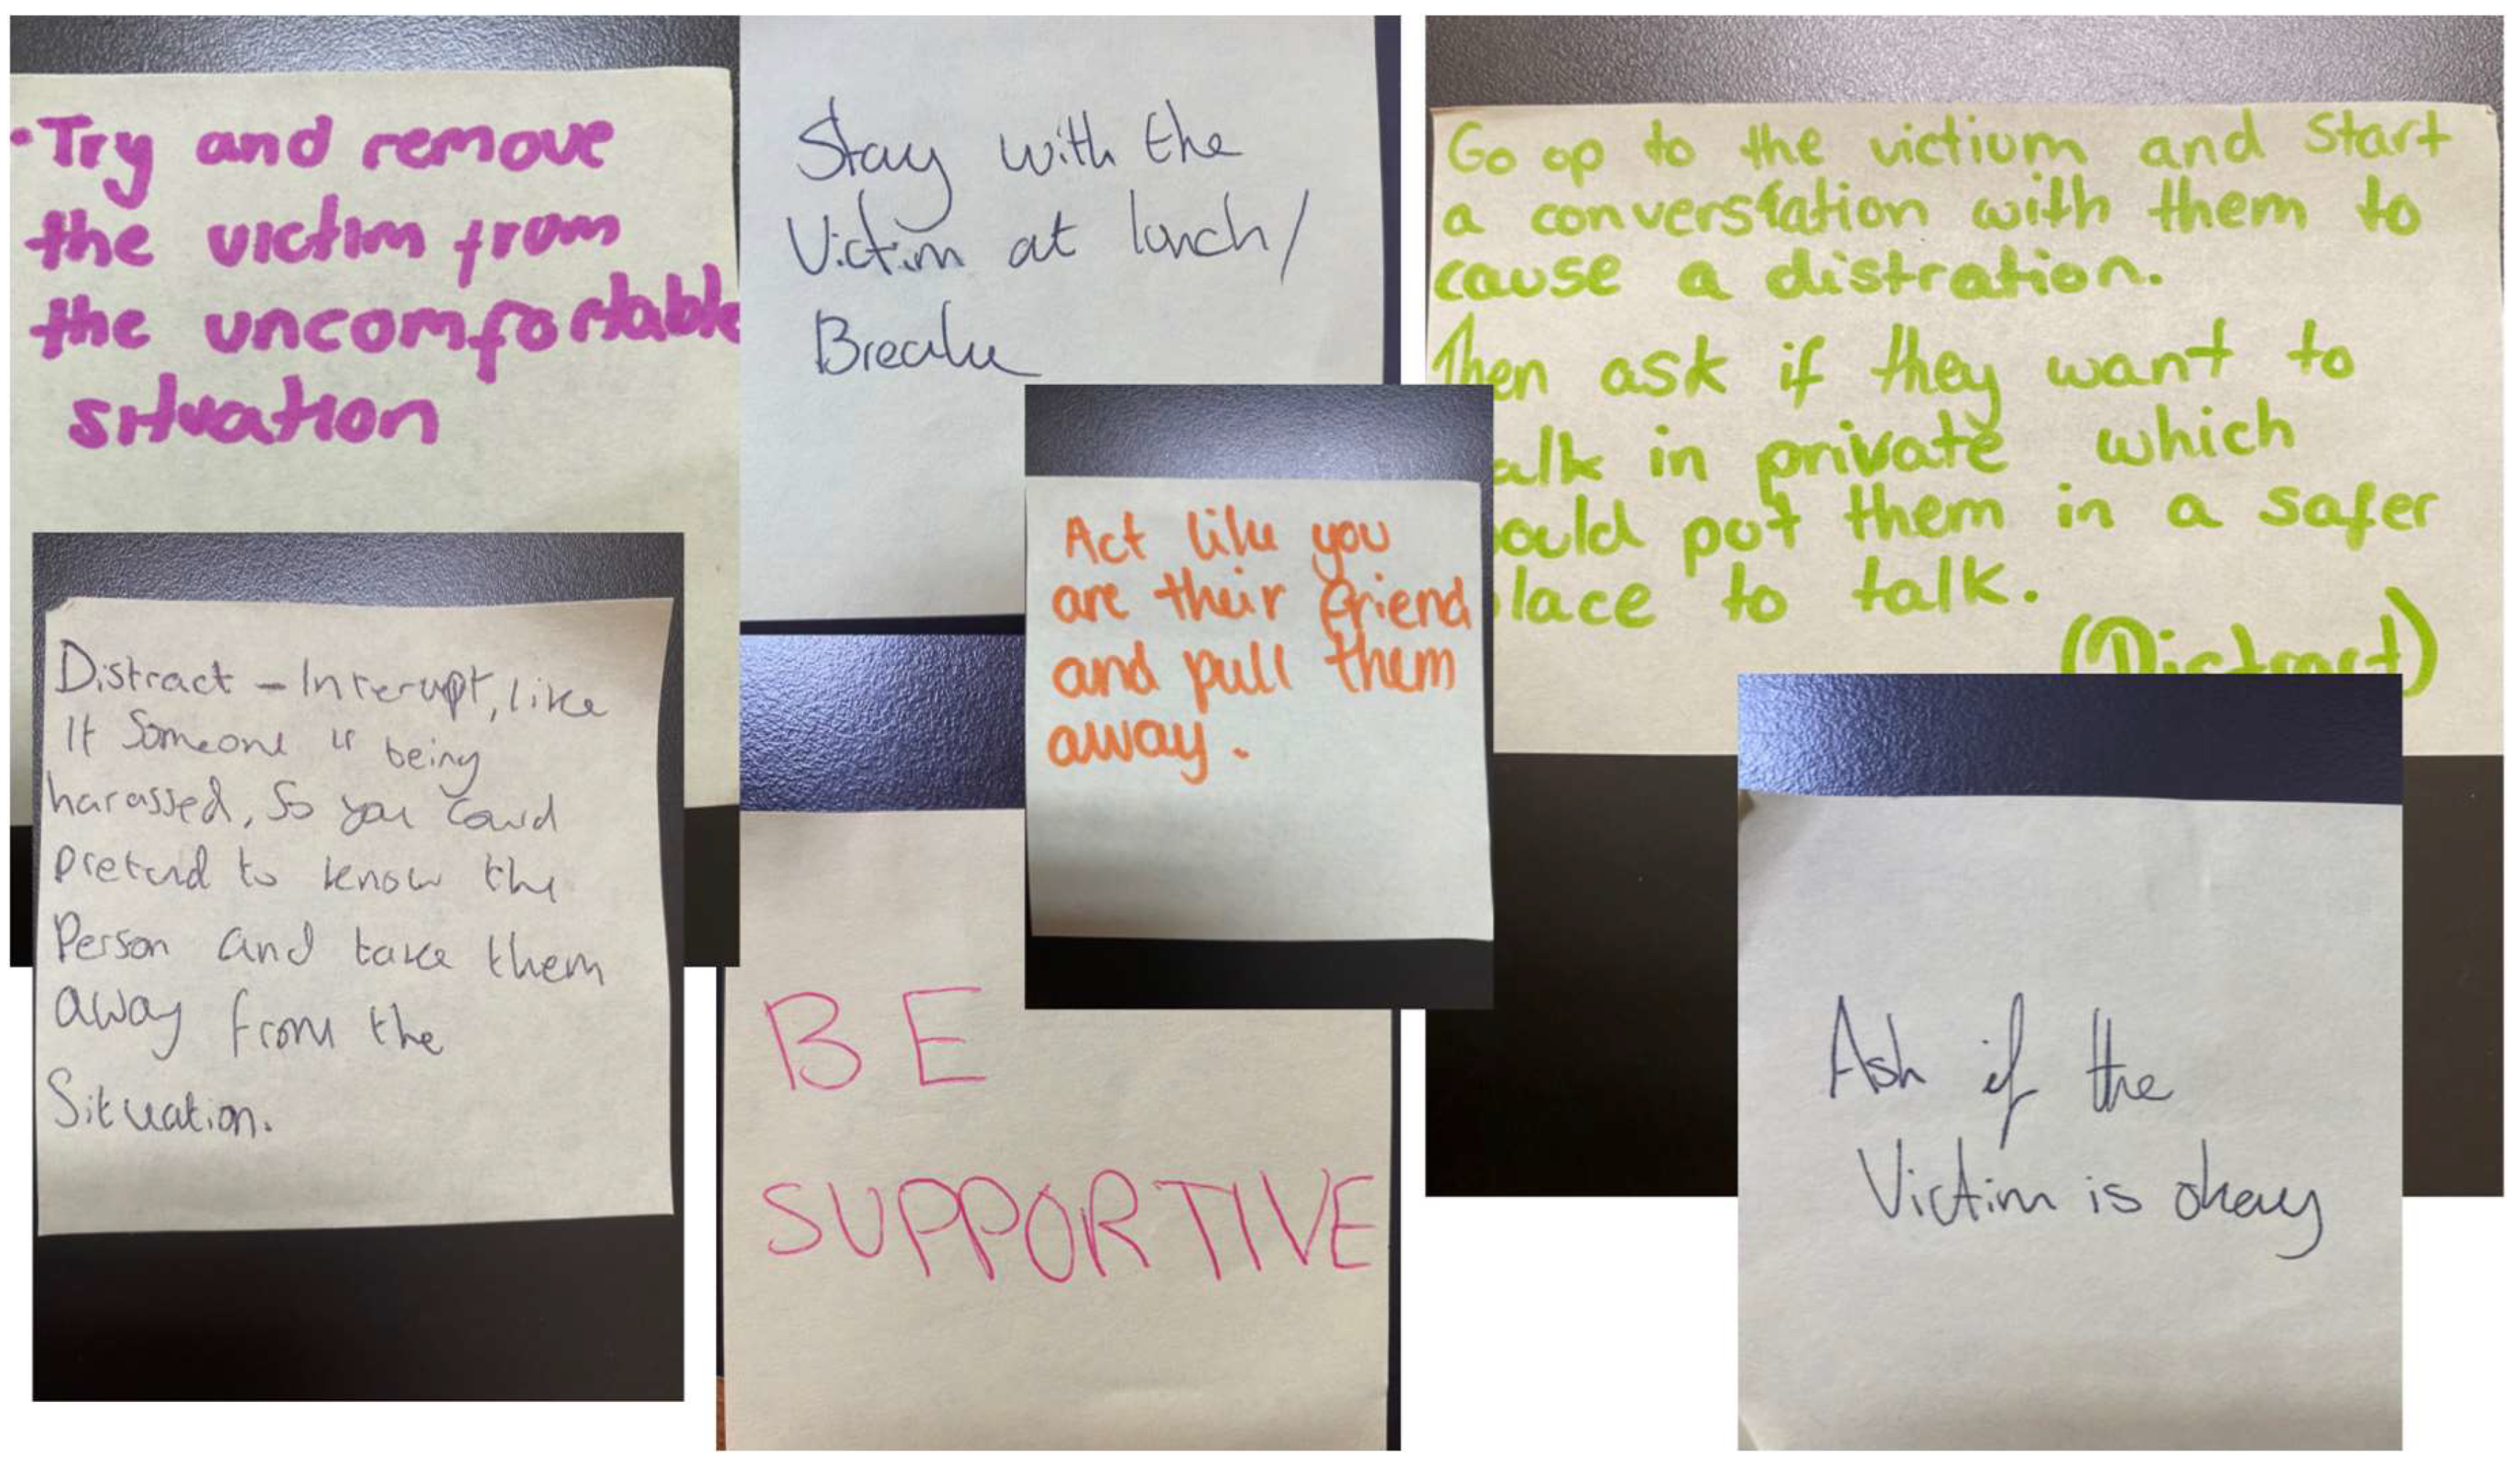 • Try and remove
the victim from
the uncomfortable
situation
Stay with the
Victim at lunch/
Break
Go up to the victium and start
a converstation with them to
cause a distration.
Then ask if they want to
alk in private which
ould put them in a safer
lace to talk.
(Distract)
Act like you
are their friend
and pull them
away.
Distract - Interupt, like
If Someone is being
harassed, So you could
pretend to know the
Person and take them
away from the
Situation.
BE
SUPPORTIVE
Ask if the
Victim is okay